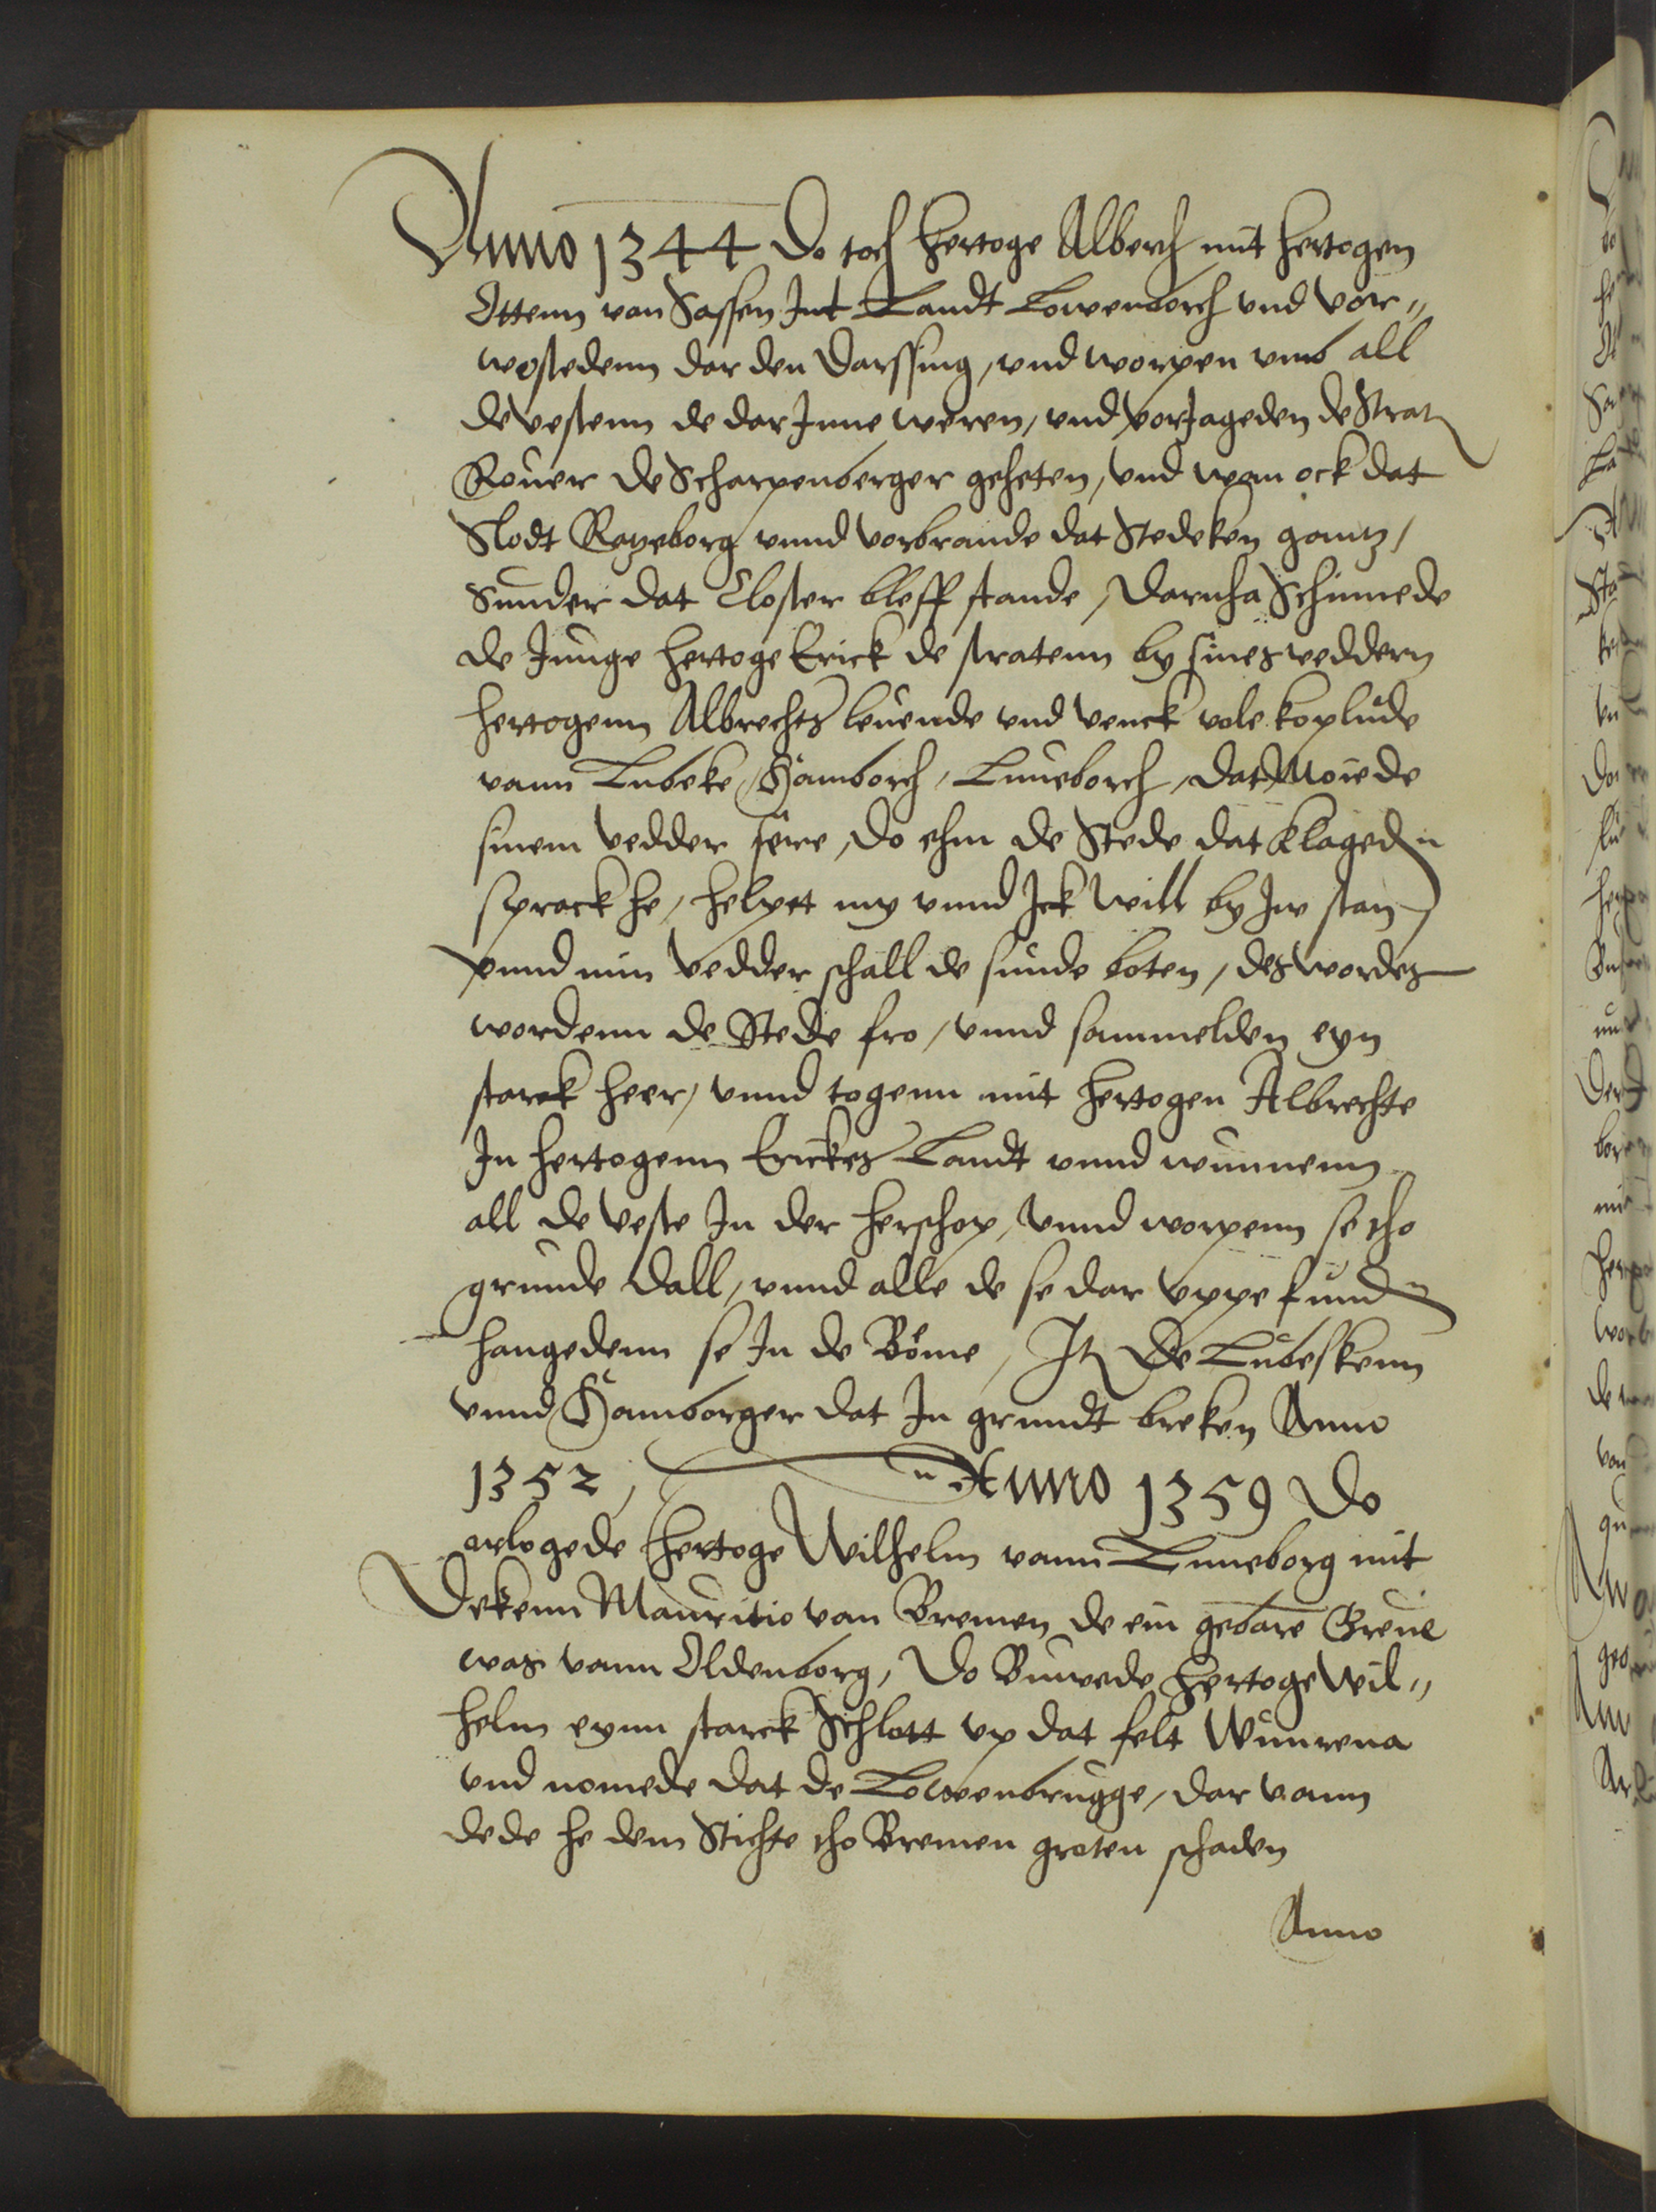 Anno 1344 Do toch hertoge Alberch mit hertogen
Ottenn van Sassen Int Landt Lowenborch vnd vor„
wostedenn dar den Darssing, vnd worpen vmb all
de vestenn de dar Inne weren, vnd vorJageden de Strat
Rouer de Scharpenberger geheten, vnd wan ock dat
Slodt Ratzeborg vnnd vorbrande dat Stedeken gantz,
Sunder dat Closter bleff stande, Darnha Schinnede
de Junge hertoge Erick de stratenn by sines veddern
hertogenn Albrechts leuende vnd venck vele koplude
vann Lubeke, Hamborch, Luneborch, Dat Moiede
sinem vedder sere, do ehm de Stede dat klageden
sprack he, helpet my vnnd Ick will by Jw stan,
vnnd min vedder schall de sunde boten, des wordes
wordenn de Stede fro, vnnd sammelden eyn
starck heer, vnnd togenn mit hertogen Albrechte
In hertogenn Erickes Landt vnnd wunnenn
all de veste In der herschop, vnnd worpenn se tho
grunde dall, vnnd alle de se dar vppe funden
hangedenn se In de Böme, It De Lubeskenn
vnnd Hamborger dat In grundt breken Anno
1352, Anno 1359 Do
orlogede hertoge Wilhelm vann Luneborg mit
Dekenn Mauritio van Bremen de ein gebare Greue
was vann Oldenborg, Do Buwede hertoge Wil„
helm eynn starck Schlott vp dat felt Wunrena
vnd nomede dat de Lowenbrugge, dar vann
dede he dem Stichte tho Bremen groten schaden
Anno